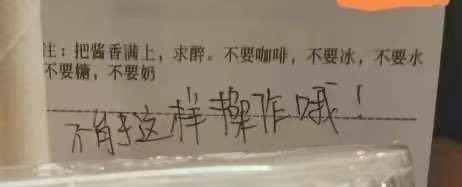 注：把酱香满上，求醉。不要咖啡，不要冰，不要水
不要糖，不要奶
不能这样操作哦！